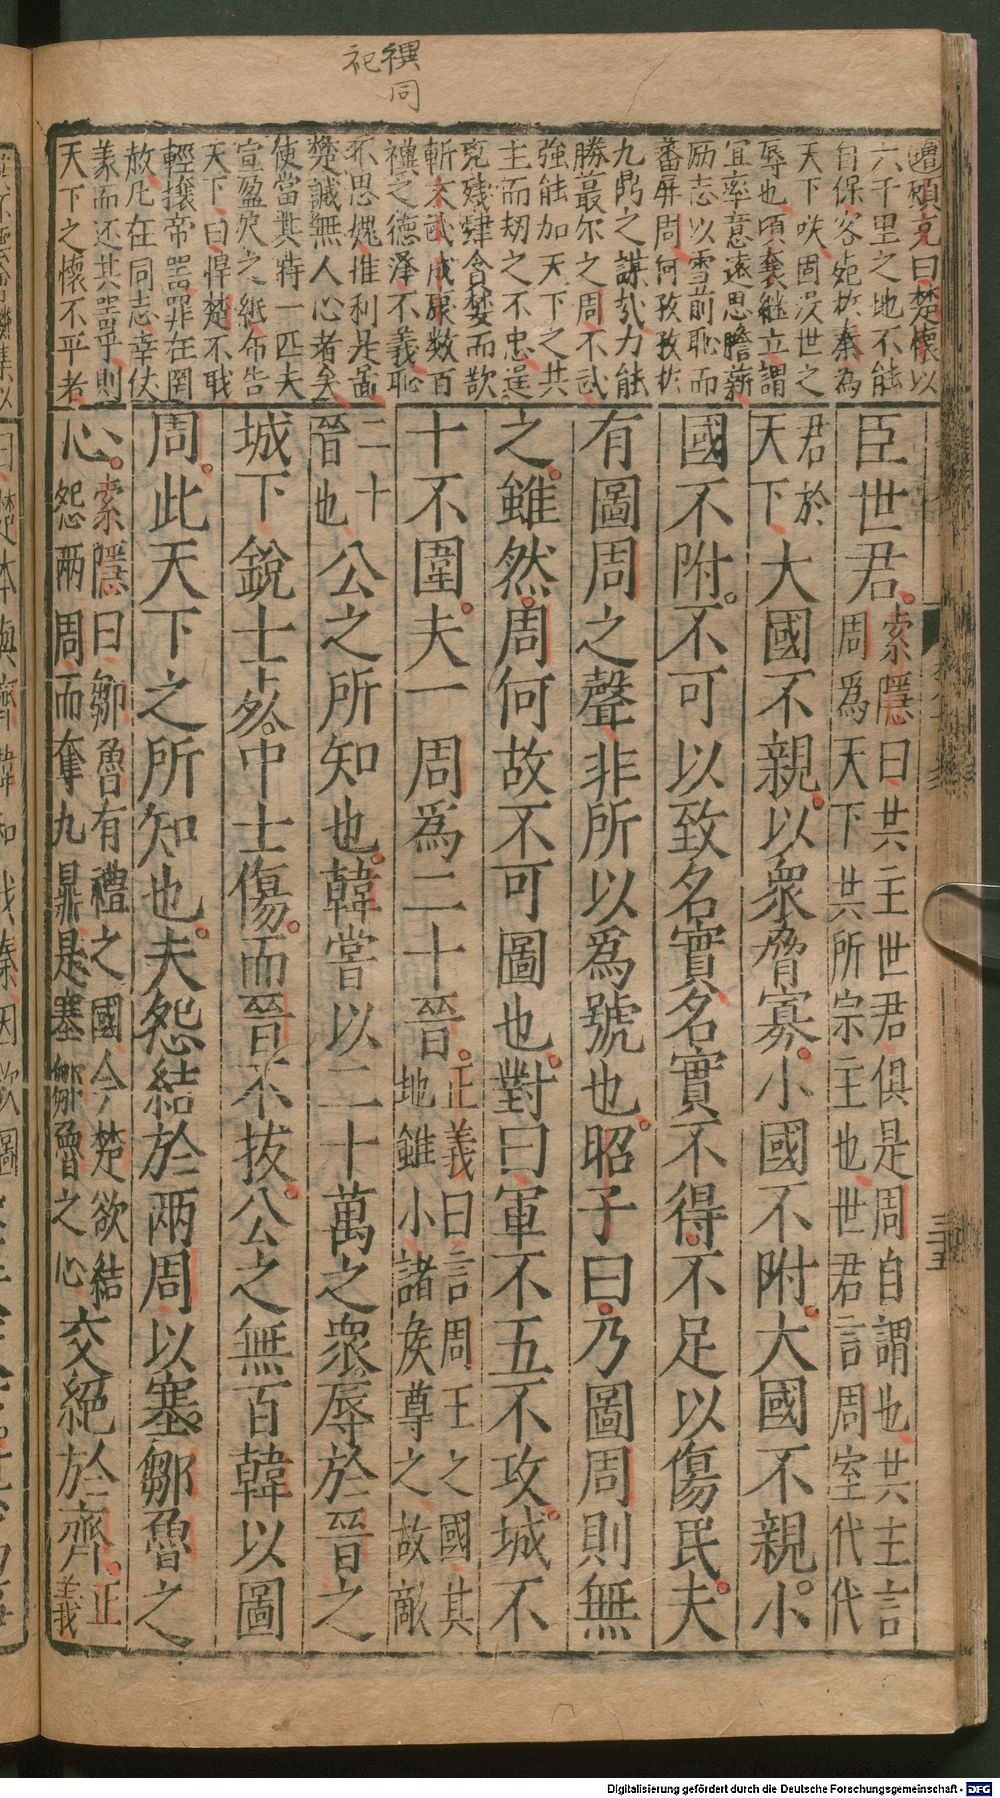 禩同
祀
六千里之地不能
天下咲固沒世之
辱也頃襄繼立謂
宜率意遠思膽薪
励志以雪前恥而
蕃屏周何孜孜於
九鼎之謀哉力能
勝蕞尔之周不武
強能加天下之共
主而刼之不忠逞
兕殘肆貪婪而歆
禩之德澤不義恥
不思媿推利是啚
楚誠無人心者矣
使當其時一匹夫
宣盈尺之紙布告
天下曰悍楚不戢
輕攘帝噐罪在罔
赦凢在同志幸仗
義而还其噐乎則
天下之懷不平者
臣世君索隱曰共主世君俱是周自謂也共主言
周爲天下共所宗主也世君言周室代代
君於
天下大國不親以衆脅寡小國不附大國不親小
國不附不可以致名實名實不得不足以傷民夫
有圖周之聲非所以爲號也昭子曰乃圖周則無
之雖然周何故不可圖也對曰軍不五不攻城不
十不圍夫一周爲二十晉正義曰言周王之國其
地雖小諸矦尊之故敵
二十
晉也公之所知也韓嘗以二十萬之衆辱於晉之
城下銳士死中士傷而晉不拔公之無百韓以圖
周此天下之所知也夫怨結於兩周以塞鄒魯之
心索隱曰鄒魯有禮之國今楚欲結
怨兩周而奪九鼎是塞鄒魯之心交絕於齊正
義
三十五
Digitalisierung gefördert durch die Deutsche Forschungsgemeinschaft - DFG